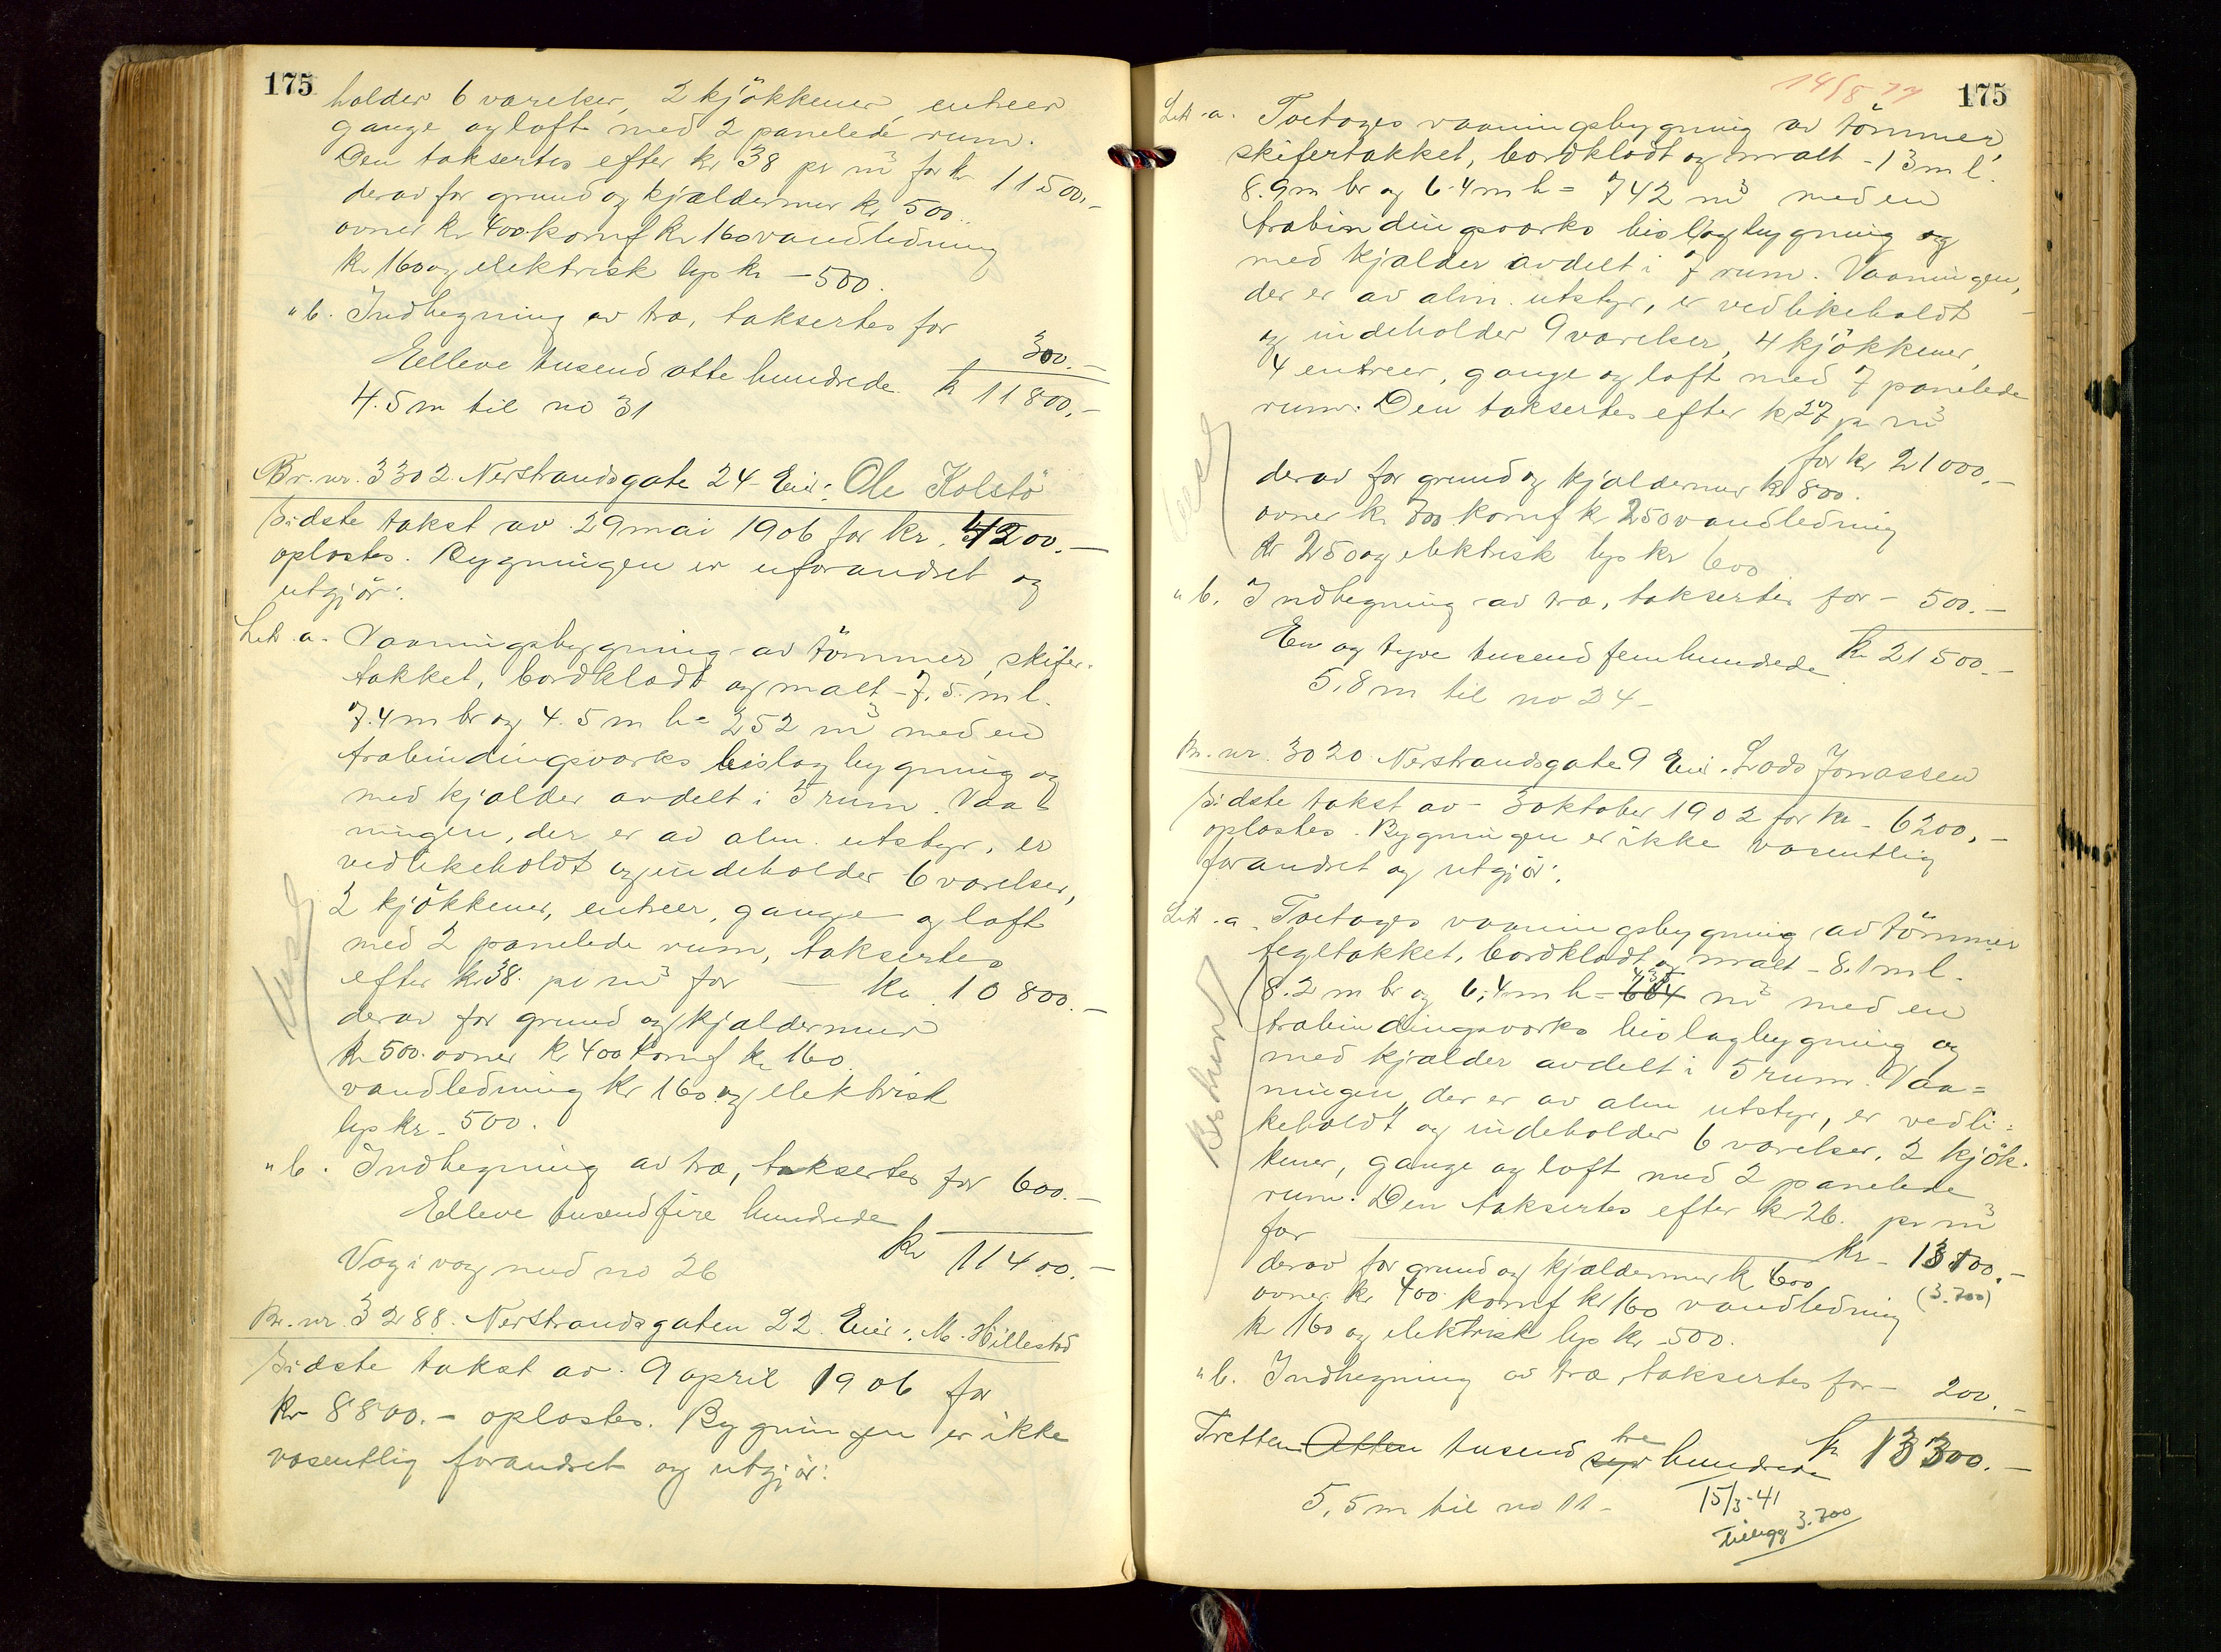 175
holder 6 værelser, 2 kjökkener, entreer
gange og loft med 2 panelede rum.
Den taksertes efter kr 38 pr m³ for kr 11500,-
derav for grund og kjældermur kr 500.
ovner kr 400 komf kr 160 vandledning
kr 160 og elektrisk lys kr - 500.
" b. Indhegning av træ, taksertes for
300.-
Elleve tusend otte hundrede kr 11800,-
4.5 m til no 31
Br. nr. 3302. Nerstrandsgate 24 Eier: Ole Kolstö
Sidste takst av 29 mai 1906 for kr. 4200.-
oplæstes. Bygningen er uforandret og
utgjör:
Litr. a. Vaaningsbygning av tömmer, skifer-
takket, bordklædt og malt - 7,5 m l.
7.4 m br og 4.5 m h = 252 m³ med en
træbindingsværks bislagbygning og
med kjælder avdelt i 5 rum. Vaa-
ningen, der er av alm. utstyr, er
vedlikeholdt og indeholder 6 værelser,
2 kjökkener, entreer, gange og loft
med 2 panelede rum, taksertes
efter kr 38. pr m³ for — kr. 10 800.-
derav for grund og kjældermur
kr 500. ovner kr 400 komf kr 160.
vandledning kr 160 og elektrisk
lys kr. 500.
" b. Indhegning av træ, taksertes for 600.-
Elleve tusend fire hundrede
kr 11400.-
Væg i væg med no 26
Br. nr. 3288. Nerstrandsgaten 22. Eier: M. Hillestad
Sidste takst av 9 april 1906 for
kr 8800.- oplæstes. Bygningen er ikke
væsentlig forandret og utgjör:
175
Litr. a. Toetages vaaningsbygning av tömmer,
skifertakket, bordklædt og malt - 13 m l.
8.9 m br og 6.4 m h = 742 m³ med en
træbindingsværks bislagbygning og
med kjælder avdelt i 7 rum. Vaaningen,
der er av alm. utstyr, er vedlikeholdt
og indeholder 9 værelser, 4 kjökkener,
4 entreer, gange og loft med 7 panelede
rum. Den taksertes efter kr 27 pr m³
for kr 21000.-
derav for grund og kjældermur kr 800.
ovner kr 700 komf kr 250 vandledning
kr 250 og elektrisk lys kr 600
" b. Indhegning av træ, taksertes for - 500.-
En og tyve tusend fem hundrede kr 21500.-
5,8 m til no 24-
Br. nr. 3020 Nerstrandsgate 9 Eier. Lads Jonassen
Sidste takst av - 3 oktober 1902 for kr - 6200,-
oplæstes. Bygningen er ikke væsentlig
forandret og utgjör:
Litr. a. Toetages vaaningsbygning av tömmer
tegltakket, bordklædt og malt - 8.1 m l.
8.2 m br og 6,4 m h = 664 m³ med en
træbindingsværks bislagbygning og
med kjælder avdelt i 5 rum. Vaa=
ningen, der er av alm utstyr, er vedli=
keholdt og indeholder 6 værelser, 2 kjök-
kener, gange og loft med 2 panelede
rum. Den taksertes efter kr 26. pr m³
for — kr - 13100.-
derav for grund og kjældermur kr 600 (3.700)
ovner kr 400 komf kr 160 vandledning
kr 160 og elektrisk lys kr 500.
" b. Indhegning av træ, taksertes for - 200.-
Tretten Atten tusend syv tre hundrede kr 13300.-
5,5 m til no 11 -
15/3-41
tillegg 3.700